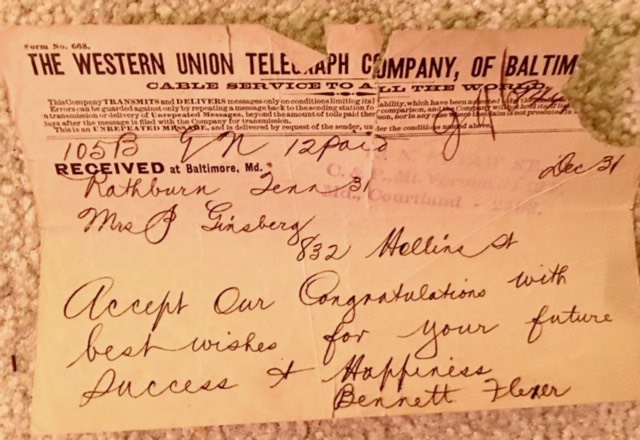 Form No. 668.
THE WESTERN UNION TELEGRAPH COMPANY, OF BALTIM
CABLE SERVICE TO ALL THE WORLD
This Company TRANSMITS and DELIVERS messages only on conditions limiting its liability, which have been
Errors can be guarded against only by repeating a message back to the sending station
a transmission or delivery of Unrepeated Messages, beyond the amount of tolls paid
days after the message is filed with the Company for transmission.
This is an UNREPEATED MESSAGE, and is delivered by request of the sender, under the conditions named above.
105B GN 12 Paid
RECEIVED at Baltimore, Md. Dec 31
C. & P., Mt. Vernon
Rathburn Tenn 31
Md., Courtland
Mrs P Ginsberg
832 Hollins St
Accept Our Congratulations with
best wishes for your future
Success & Happiness
Bennett Flexer